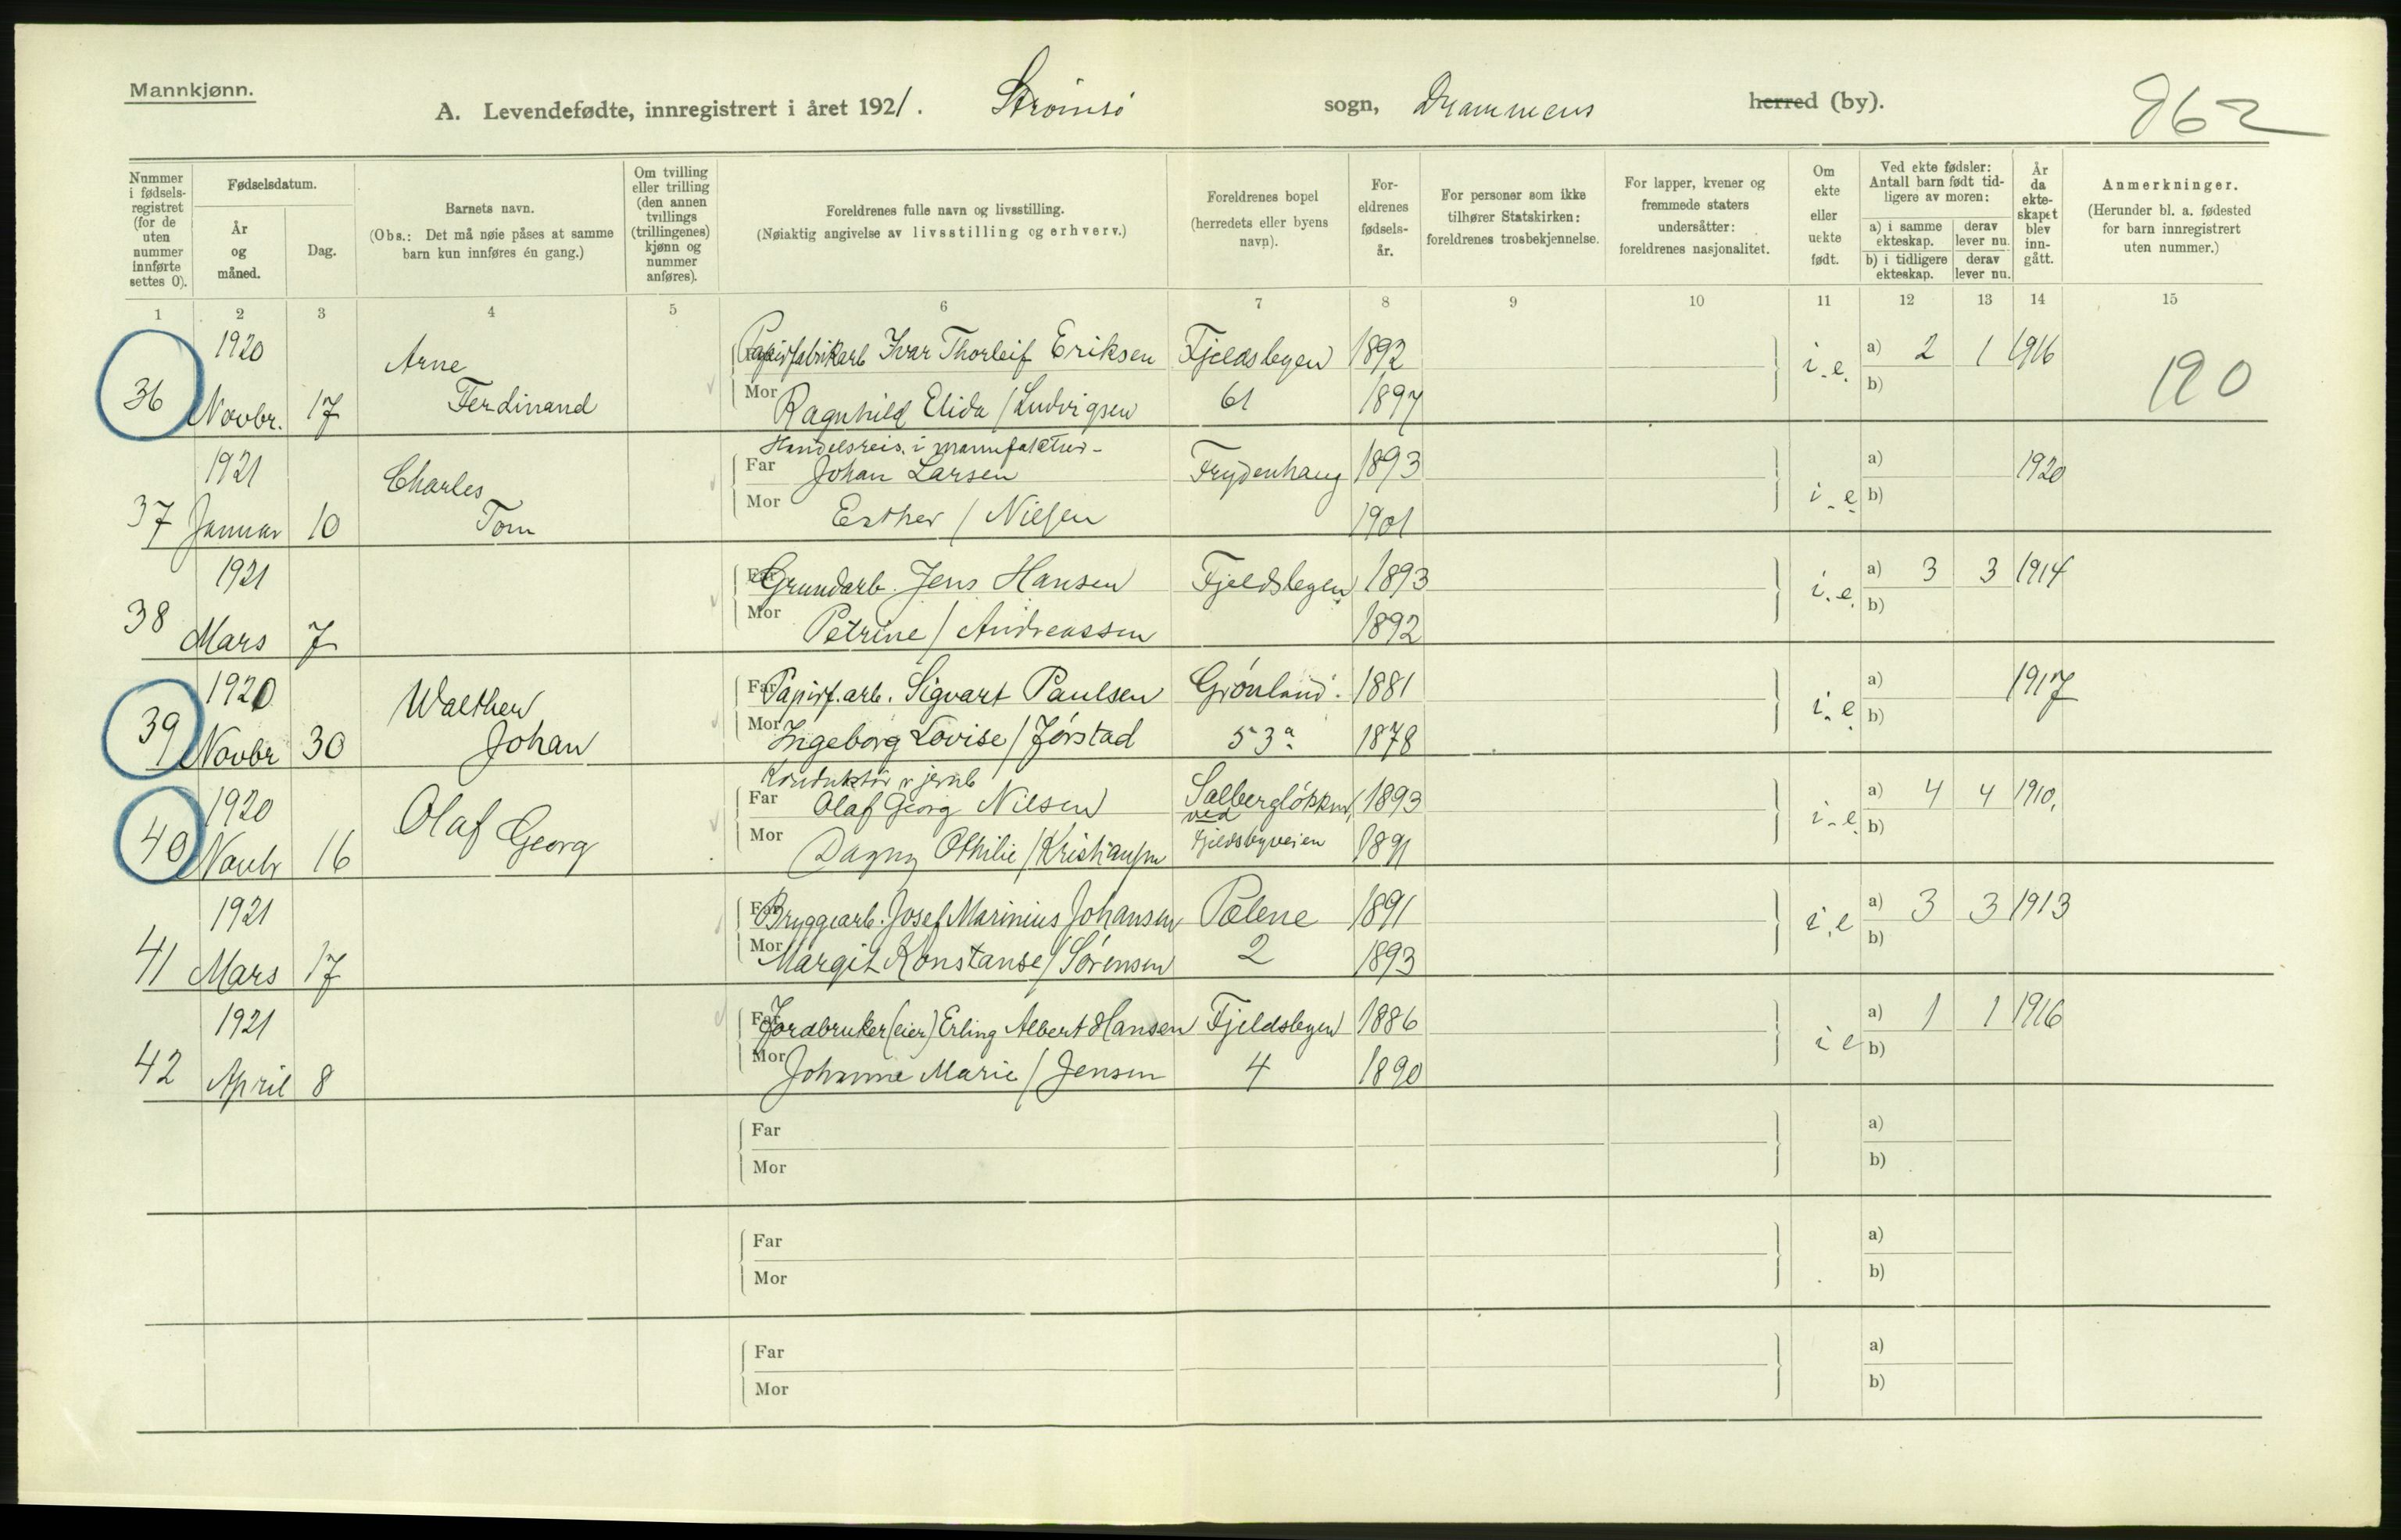 Mannkjønn.
A. Levendefødte, innregistrert i året 1921. Strømsø sogn, Drammens herred (by).
962
Nummer i fødsels-registret (for de uten nummer innførte settes 0).
Fødselsdatum.
År og måned.
Dag.
Barnets navn.
(Obs.: Det må nøie påses at samme barn kun innføres én gang.)
Om tvilling eller trilling (den annen tvillings (trillingenes) kjønn og nummer anføres).
Foreldrenes fulle navn og livsstilling.
(Nøiaktig angivelse av livsstilling og erhverv.)
Foreldrenes bopel
(herredets eller byens navn).
For-eldrenes fødsels-år.
For personer som ikke tilhører Statskirken: foreldrenes trosbekjennelse.
For lapper, kvener og fremmede staters undersåtter: foreldrenes nasjonalitet.
Om ekte eller uekte født.
Ved ekte fødsler: Antall barn født tid-ligere av moren:
a) i samme ekteskap.
derav lever nu.
b) i tidligere ekteskap.
derav lever nu.
År da ekte-skapet blev inn-gått.
Anmerkninger.
(Herunder bl. a. fødested for barn innregistrert uten nummer.)
1 2 3 4 5 6 7 8 9 10 11 12 13 14 15
1920 Arne Far Papirfabrikarb Ivar Thorleif Eriksen Fjeldsbyen 1892 i.e. a) 2 1 1916
36 Novbr. 17 Ferdinand Mor Ragnhild Elida / Ludvigsen 61 1897 b) 190
Handelsreis. i manufaktur-
1921 Charles Far Johan Larsen Frydenhaug 1893 a) 1920
37 Januar 10 Tom Mor Esther / Nielsen 1901 i.e. b)
1921 Far Grundarb. Jens Hansen Fjeldsbyen 1893 i.e. a) 3 3 1914
38 Mars 7 Mor Petrine / Andreassen 1892 b)
1920 Walther Far Papirf.arb. Sigvart Paulsen Grønland 1881 i.e. a) 1917
39 Novbr 30 Johan Mor Ingeborg Lovise / Jørstad 53a 1878 b)
Konduktør v jernb
1920 Olaf Georg Far Olaf Georg Nilsen 1893 i.e. a) 4 4 1910.
ved
40 Novbr 16 Mor Dagny Othilie / Kristiansen Fjeldsbyveien 1891 b)
1921 Far Bryggearb. Josef Marinius Johansen Pælene 1891 i.e a) 3 3 1913
41 Mars 17 Mor Margit Konstanse / Sørensen 2 1893 b)
1921 Far Jordbruker (eier) Erling Albert Hansen Fjeldsbyen 1886 i e a) 1 1 1916
42 April 8 Mor Johanne Marie / Jensen 4 1890 b)
Far a)
Mor b)
Far a)
Mor b)
Far a)
Mor b)